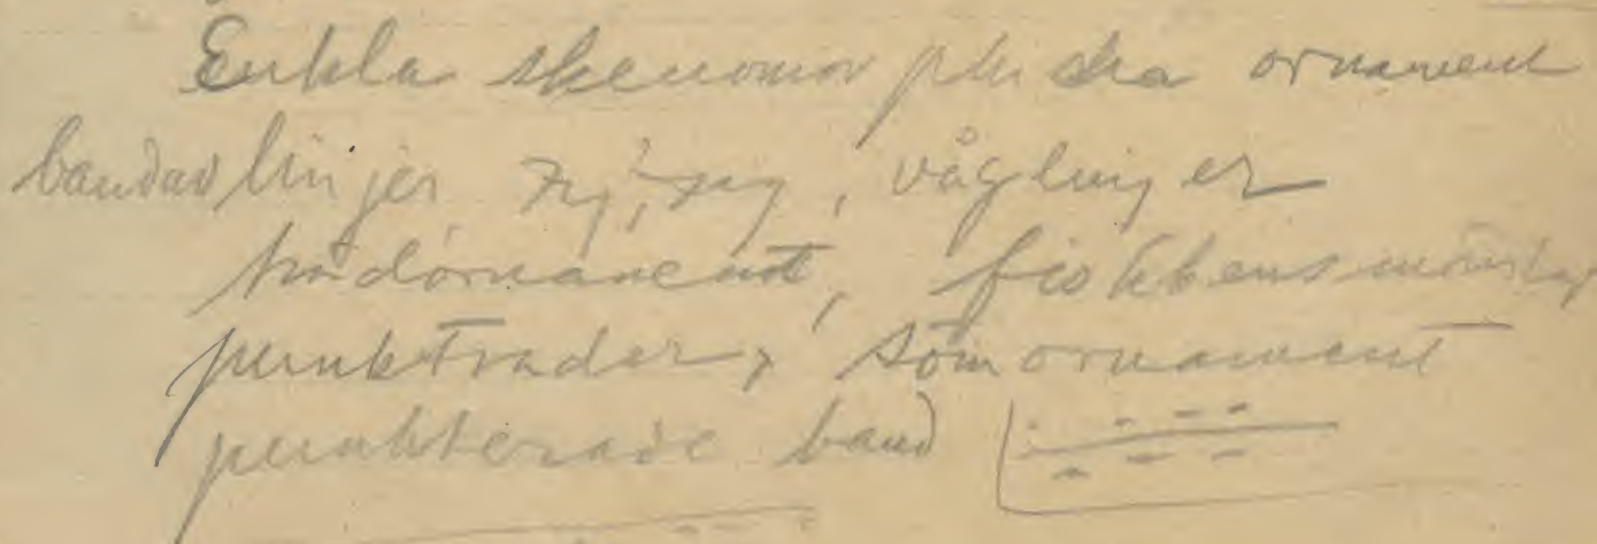 Enkla skeuomorphiska ornament
band av linjer zig, zag, våglinjer
trådornament, fiskbensmönster
punktrader, sömornament
punkterade band